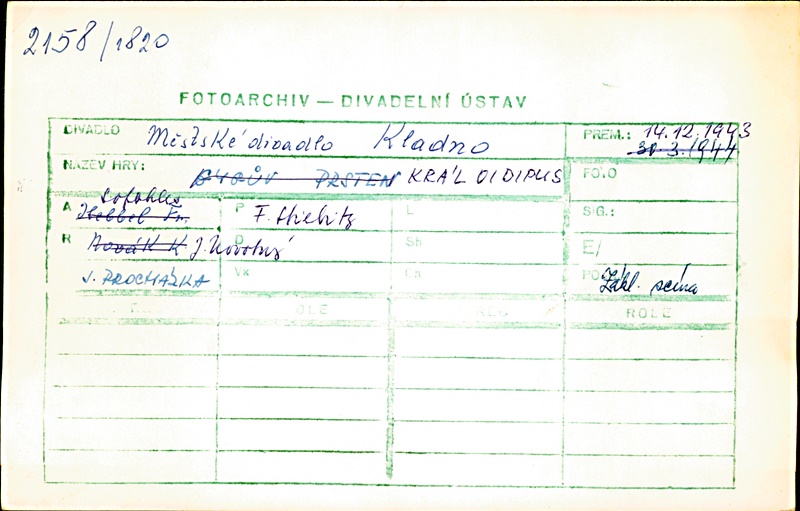 2158/1820
FOTOARCHIV — DIVADELNÍ ÚSTAV
DIVADLO Městské divadlo Kladno PREM.: 14.12.1943
30.3.1944
NÁZEV HRY: GYGŮV PRSTEN KRÁL OIDIPUS FOTO
Sofokles
A Hebbel Fr. P F. Stiebitz L SIG.:
R Novák K J. Novotný D Sh E/
J. PROCHÁZKA Vk PO Zákl. scéna
ROLE